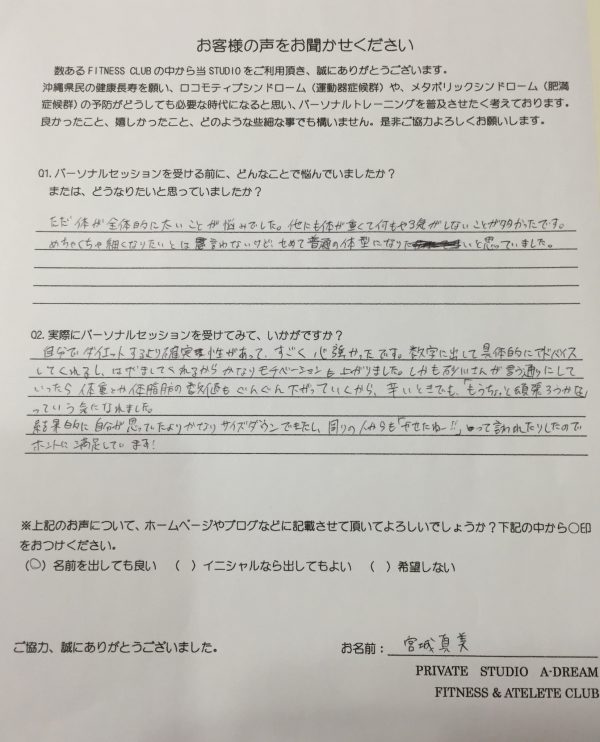 お客様の声をお聞かせください
数ある FITNESS CLUB の中から当 STUDIO をご利用頂き、誠にありがとうございます。
沖縄県民の健康長寿を願い、ロコモティブシンドローム（運動器症候群）や、メタボリックシンドローム（肥満
症候群）の予防がどうしても必要な時代になると思い、パーソナルトレーニングを普及させたく考えております。
良かったこと、嬉しかったこと、どのような些細な事でも構いません。是非ご協力よろしくお願いします。
Q1. パーソナルセッションを受ける前に、どんなことで悩んでいましたか？
または、どうなりたいと思っていましたか？
ただ体が全体的に太いことが悩みでした。他にも体が重くて何もやる気がしないことが多かったです。
めちゃくちゃ細くなりたいとは言わないけど、せめて普通の体型になりたいと思っていました。
Q2. 実際にパーソナルセッションを受けてみて、いかがですか？
自分でダイエットするより確実性があって、すごく心強かったです。数字に出して具体的にアドバイス
してくれるし、はげましてくれるからかなりモチベーションも上がりました。しかも砂川さんが言う通りにして
いったら体重とか体脂肪の数値もぐんぐん下がっていくから、辛いときでも、「もうちょっと頑張ろうかな」
っていう気になれました。
結果的に自分が思っていたよりかなりサイズダウンできたし、周りの人からも「やせたねー!!」って言われたりしたので
ホントに満足しています!
※上記のお声について、ホームページやブログなどに記載させて頂いてよろしいでしょうか？下記の中から○印
をおつけください。
（○）名前を出しても良い （ ）イニシャルなら出してもよい （ ）希望しない
ご協力、誠にありがとうございました。
お名前： 宮城真美
PRIVATE STUDIO A-DREAM
FITNESS & ATELETE CLUB